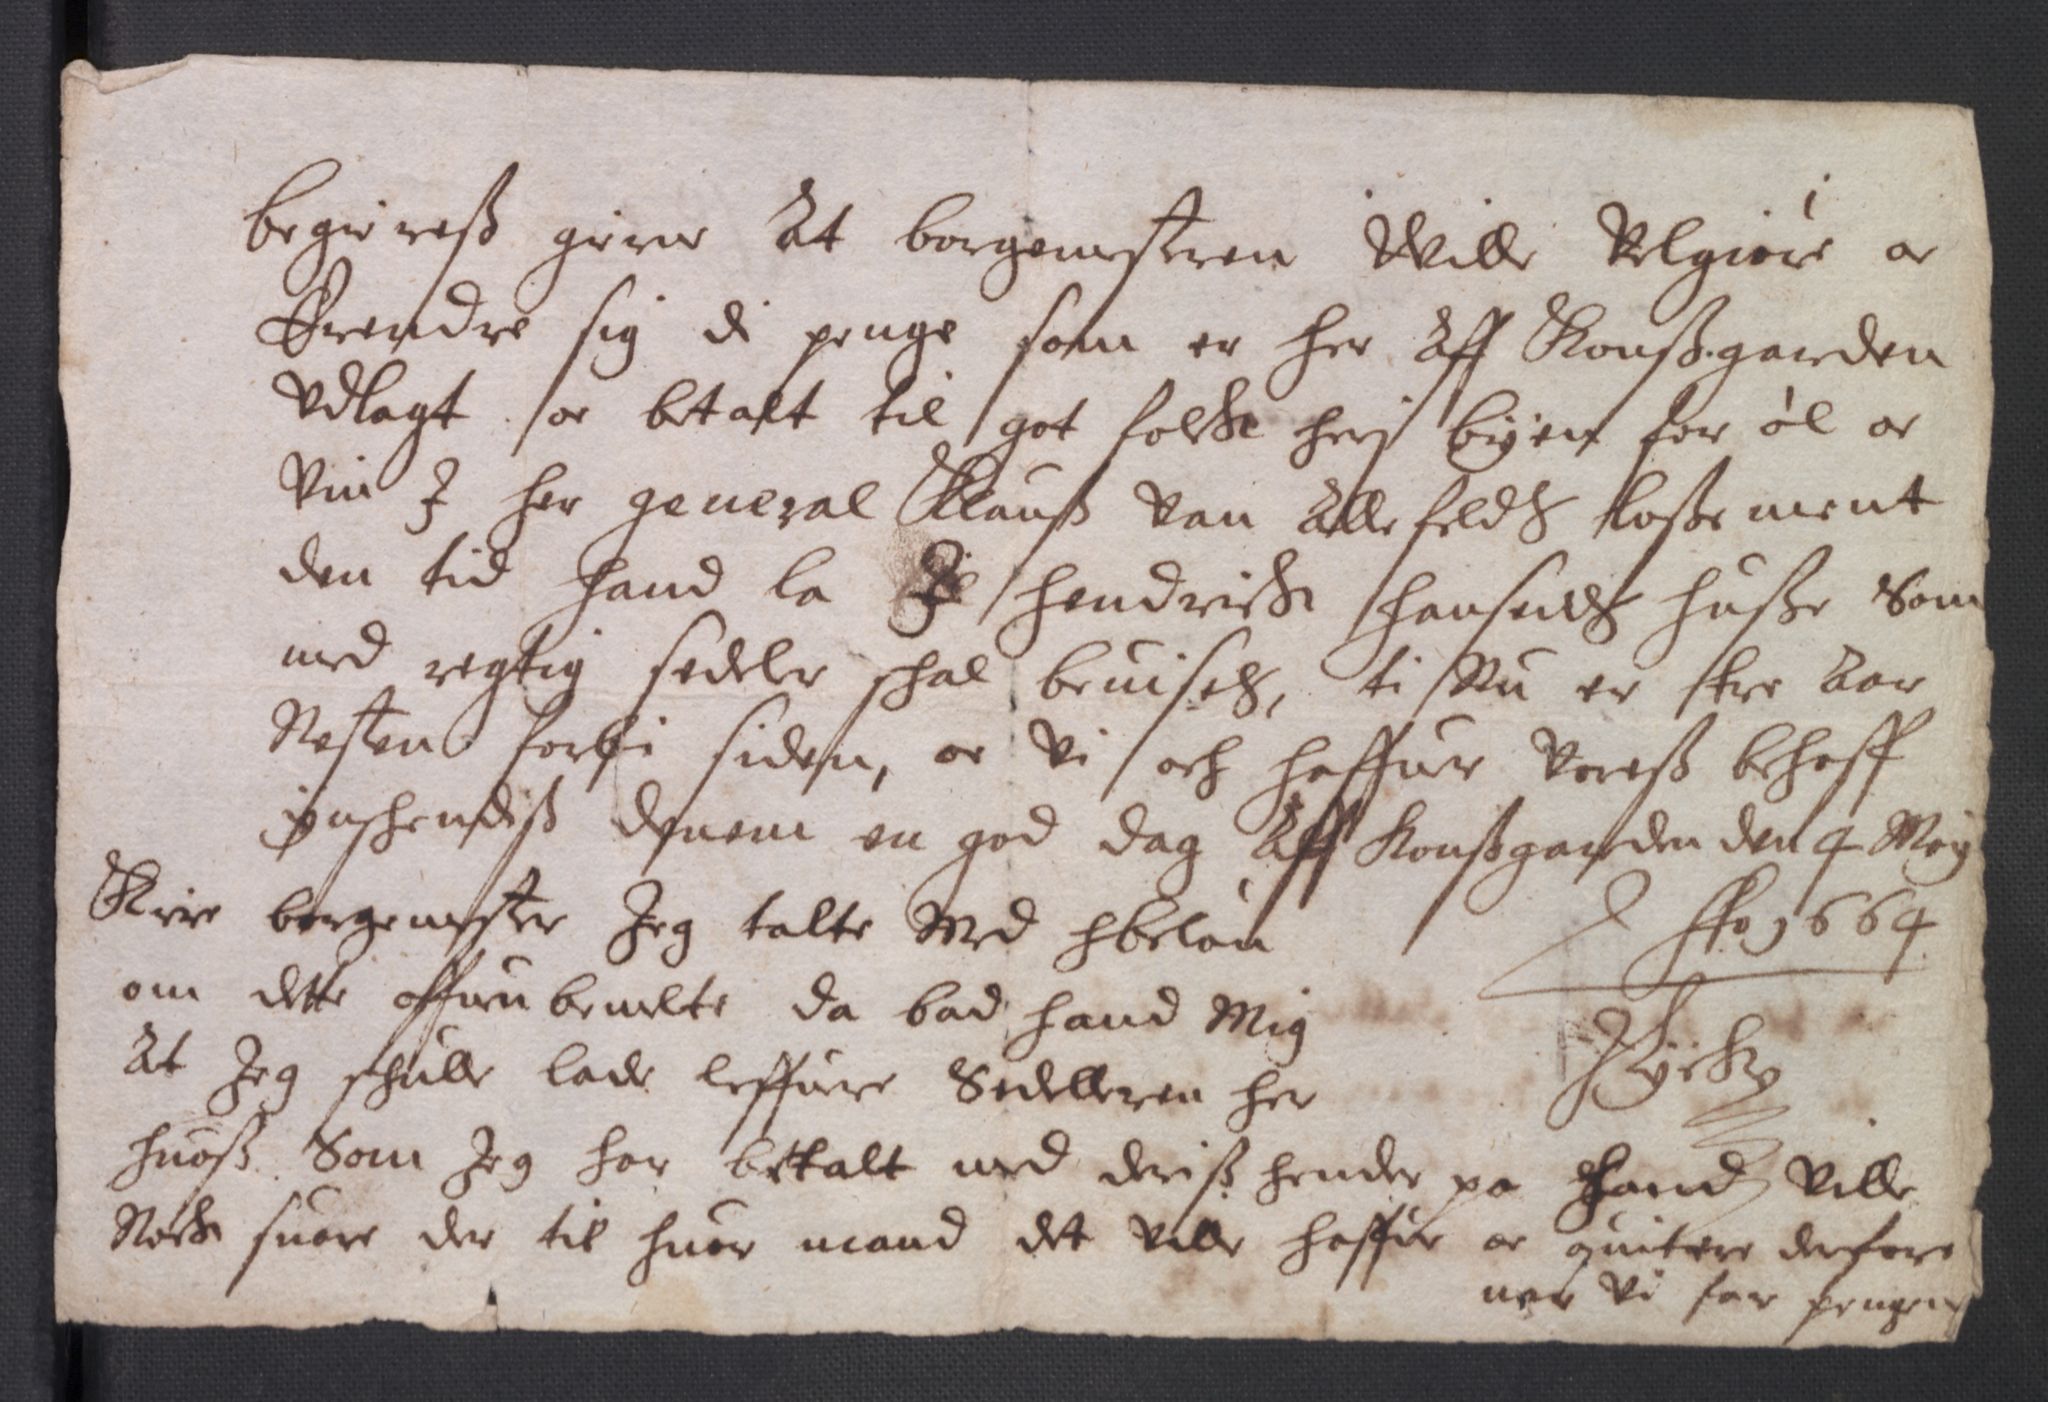 begiereß giern At borgemesteren Wille Velgiöre oc
Erendre sig di penge som er her Aff Konßgaarden
Vdlagt oc betalt til got folck her j byen for öl oc
Vin J her general Klauß Van Allefeldz losßement
den tid hand la J hendrick hansens husße Som
med regtig sedeler schal beuises, ti Nu er tre Aar
Nesten forbi siden, oc Vi och haffuer Voreß behoff
denem en god dag Aff Konßgaarden den 4 Maij
Ao 1664
Kiere borgemester Jeg talte Med
om dette offuenbemelte da bad hand Mig
At Jeg schulle lade leffuere Sedelleren her
huoß Som Jeg har bettalt med deriß hender pa hand Ville
Nock suare der til huor mand det Ville haffue oc quitere derfore
nar Vi far pengene